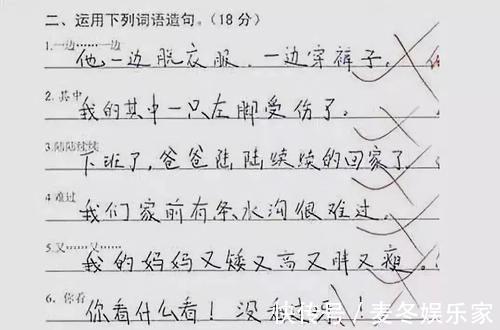 二、运用下列词语造句。(18分)
1.一边……一边
他一边脱衣服，一边穿裤子。
2. 其中
我的其中一只左脚受伤了。
3.陆陆续续
下班了，爸爸陆陆续续的回家了
4.难过
我们家前有条水沟很难过。
5.又……又……
我的妈妈又矮又高又胖又瘦。
6. 你看
你看什么看！没
快传号／麦冬娱乐家